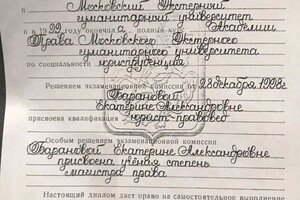 Московский Экстерный
гуманитарный университет
и в 1999 году окончила полный курс Академии
Права Московского Экстерного
гуманитарного университета
по специальности юриспруденция
Решением экзаменационной комиссии от 28 декабря 1998 г.
Барановой
Екатерине Александровне
присвоена квалификация юрист-правовед
Особым решением экзаменационной комиссии
Барановой Екатерине Александровне
присвоена учёная степень
магистра права
Настоящий диплом дает право на самостоятельное выполнение